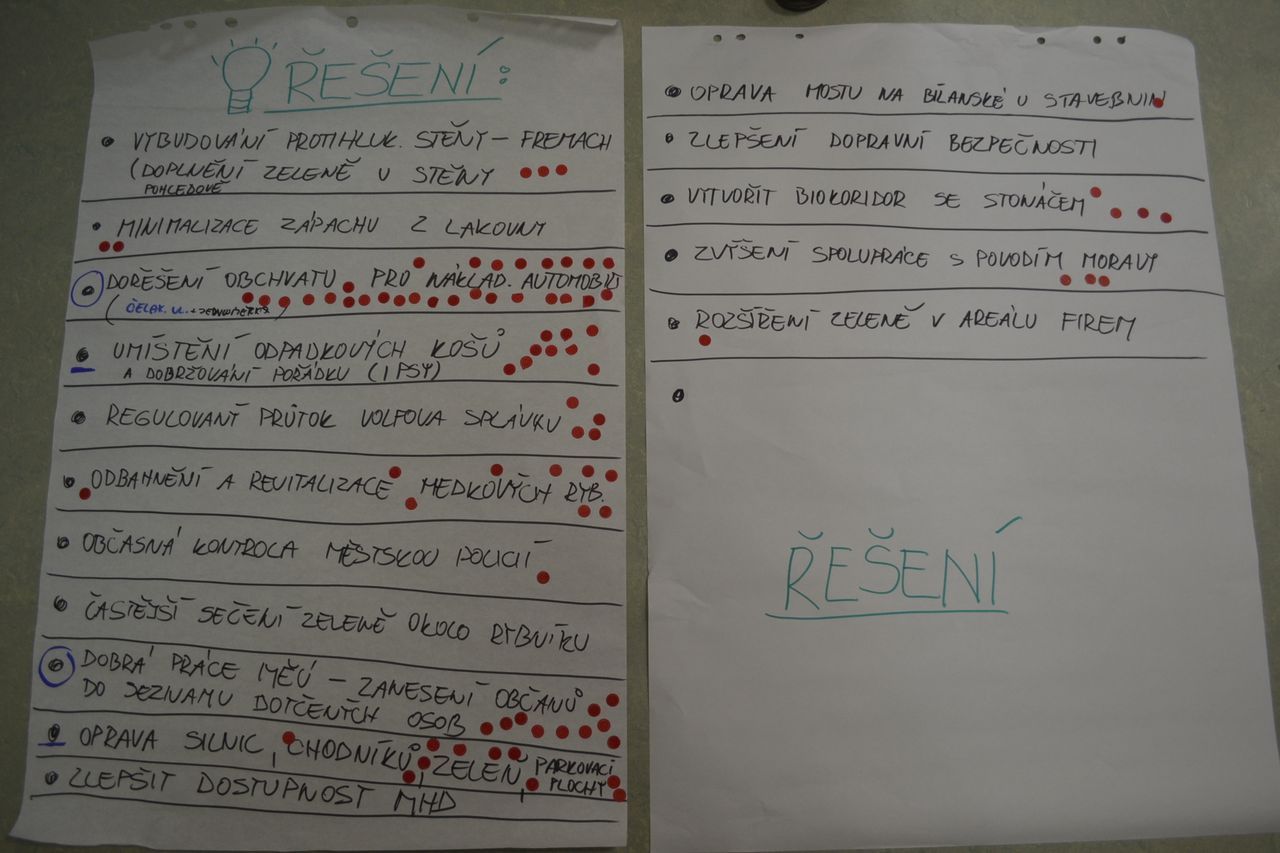 ŘEŠENÍ:
• VYBUDOVÁNÍ PROTIHLUK. STĚNY – FREMACH
(DOPLNĚNÍ ZELENĚ U STĚNY
POHLEDOVĚ
• MINIMALIZACE ZÁPACHU Z LAKOVNY
• DOŘEŠENÍ OBCHVATU PRO NÁKLAD. AUTOMOBILY
(ČELAK. UL.
• UMÍSTĚNÍ ODPADKOVÝCH KOŠŮ
A DOBRŽOVÁNÍ POŘÁDKU (I PSY)
• REGULOVANÝ PRŮTOK VOLFOVA SPLÁVKU
• ODBAHNĚNÍ A REVITALIZACE MEDKOVÝCH RYB.
• OBČASNÁ KONTROLA MĚSTSKOU POLICIÍ
• ČASTĚJŠÍ SEČENÍ ZELENĚ OKOLO RYBNÍKU
• DOBRÁ PRÁCE MĚÚ – ZANESENÍ OBČANŮ
DO SEZNAMU DOTČENÝCH OSOB
• OPRAVA SILNIC, CHODNÍKŮ, ZELEŇ, PARKOVACÍ
PLOCHY
• ZLEPŠIT DOSTUPNOST MHD
• OPRAVA MOSTU NA BÍLANSKÉ U STAVEBNIN
• ZLEPŠENÍ DOPRAVNÍ BEZPEČNOSTI
• VYTVOŘIT BIOKORIDOR SE STONÁČEM
• ZVÝŠENÍ SPOLUPRÁCE S POVODÍM MORAVY
• ROZŠÍŘENÍ ZELENĚ V AREÁLU FIREM
•
ŘEŠENÍ